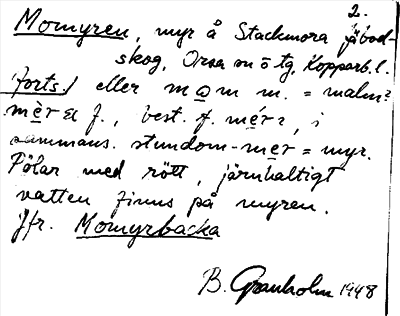 2.
Momyren, myr å Stackmora fäbod-
skog, Orsa sn ö tg, Kopparb. l.
(forts.) eller mom m. = malm?
mèr f., best. f. mér, i
sammans. stundom -mer = myr.
Pölar med rött, järnhaltigt
vatten finns på myren.
Jfr. Momyrbacka
B. Granholm 1948